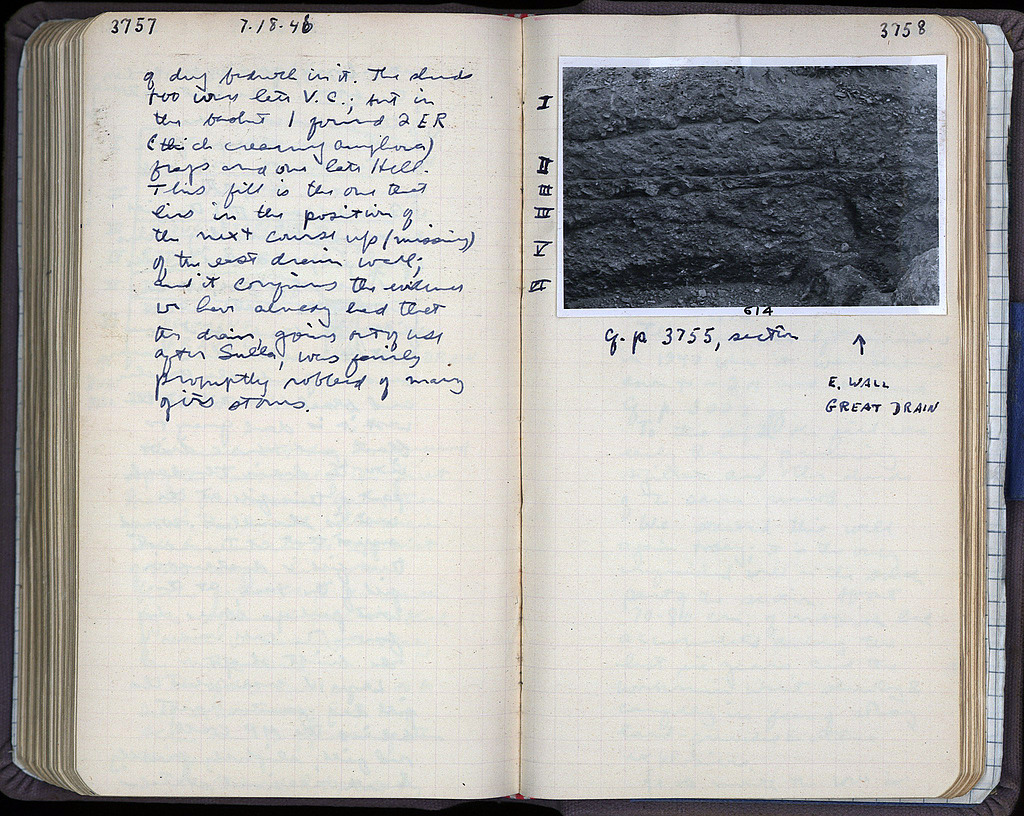 3757 7.18.46
of dug bedrock in it. The sherds
too were late V. C.; but in
the basket I found 2 ER
(thick creamy amphora)
frags and one late Hell.
This fill is the one that
lies in the position of
the next course up (missing)
of the east drain wall;
and it confirms the evidence
we have already had that
the drain, going out of use
after Sulla, was fairly
promptly robbed of many
of its stones.
3758
I
II
III
IV
V
VI
614
cf. p 3755, section
↑
E. WALL
GREAT DRAIN